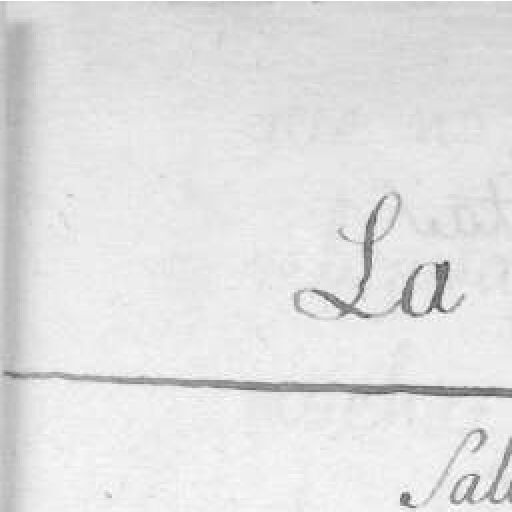 La
Sal